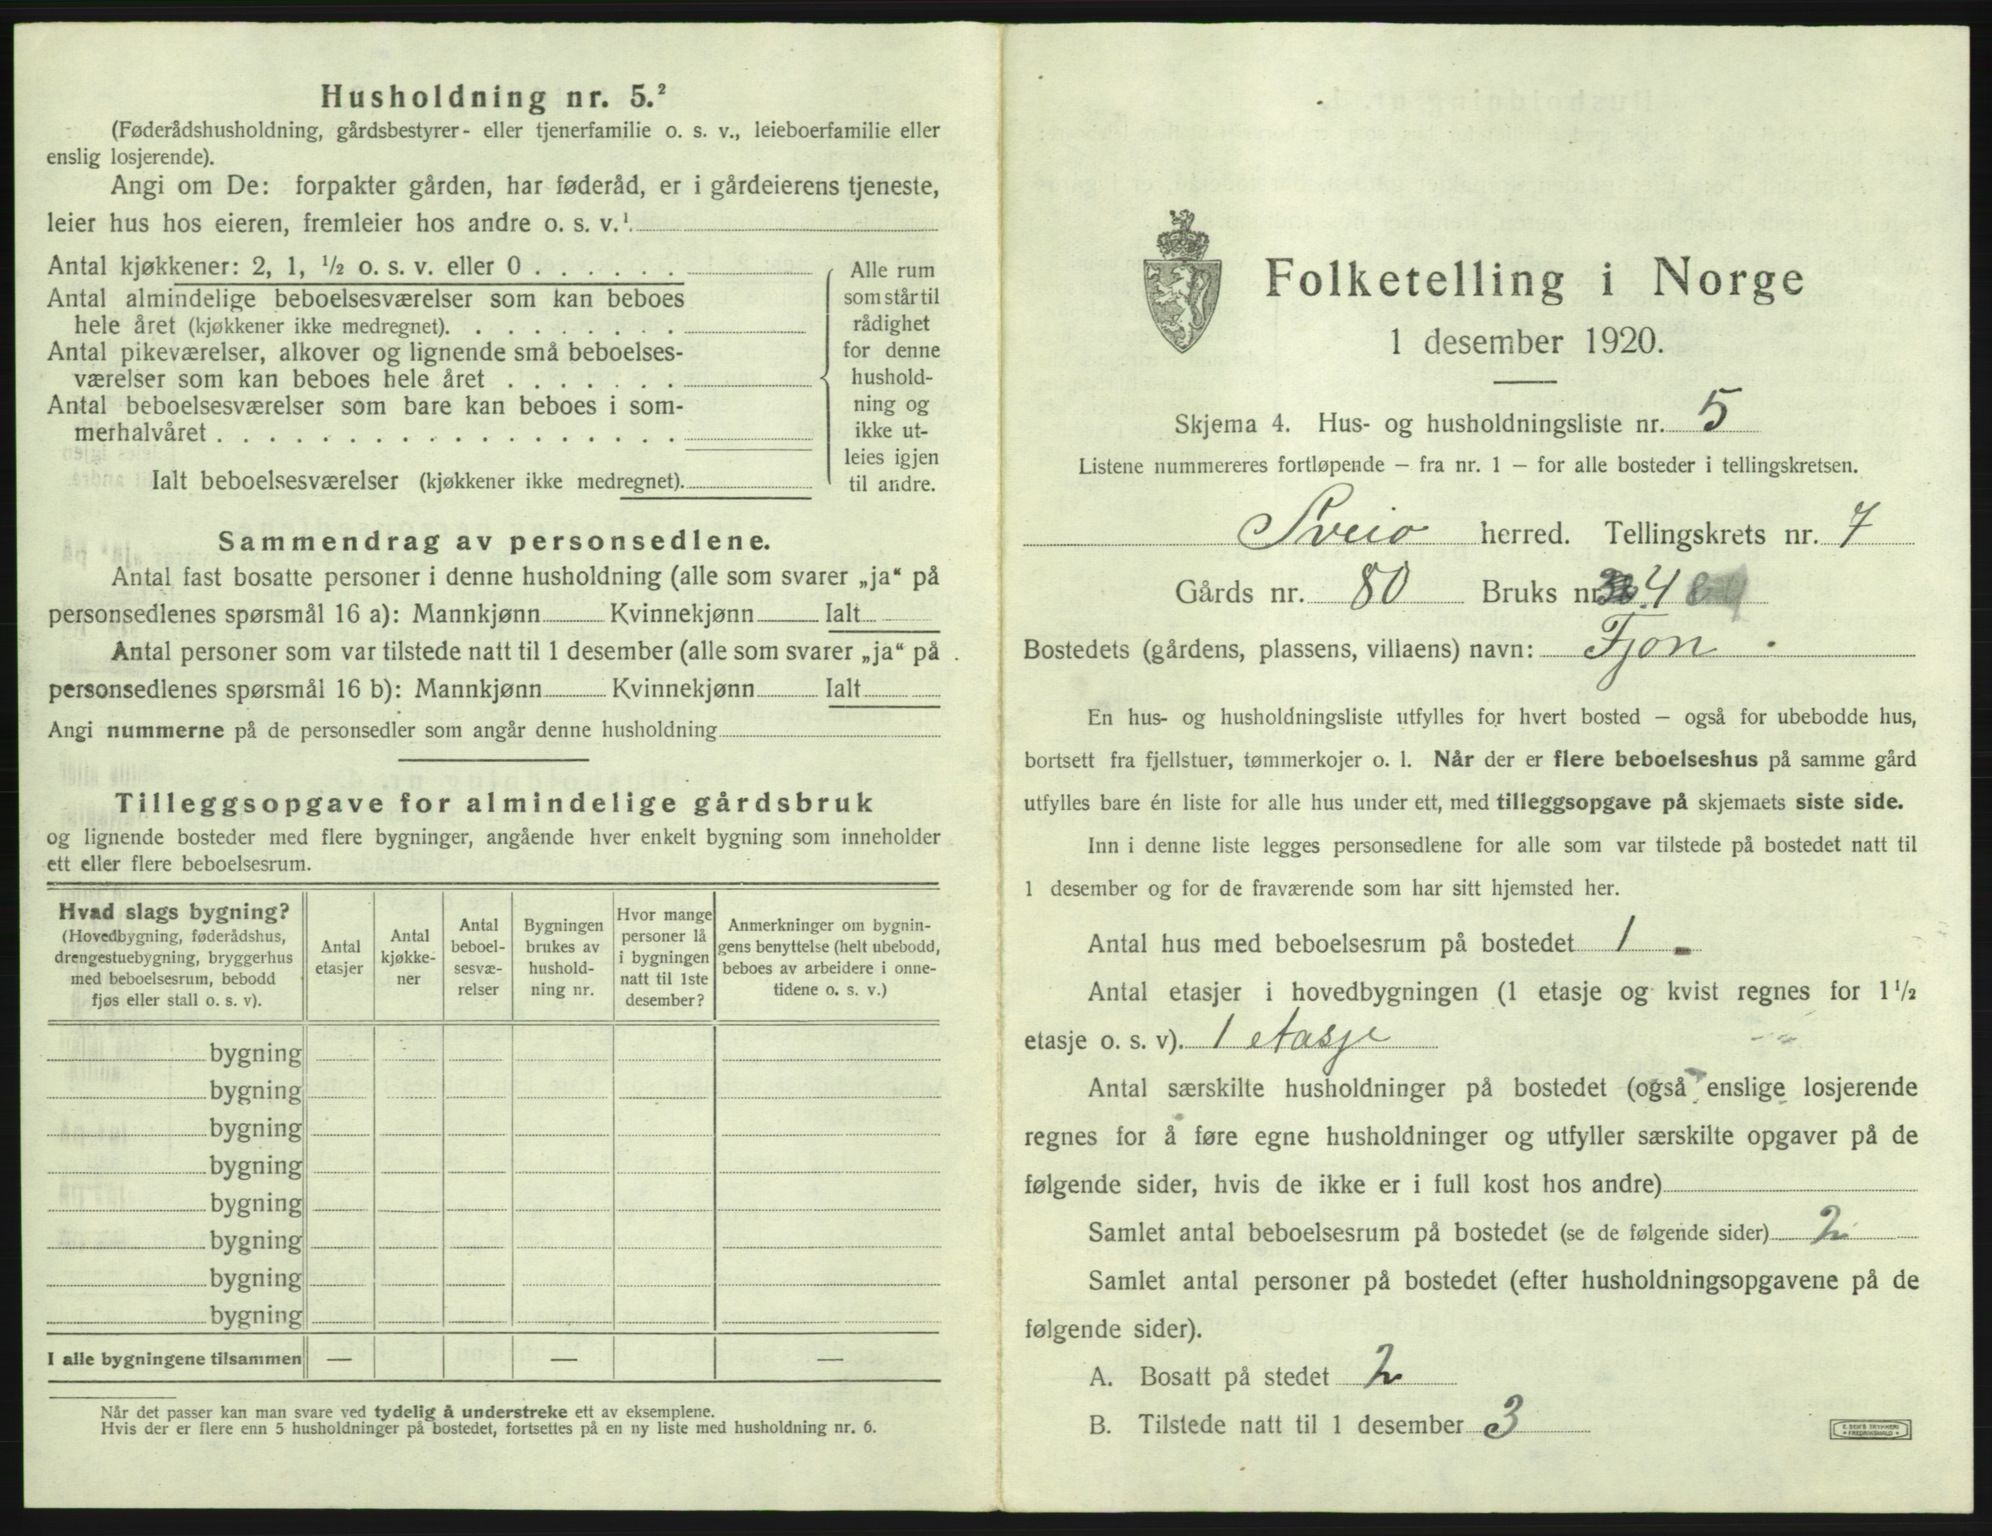 Husholdning nr. 5.²
(Føderådshusholdning, gårdsbestyrer- eller tjenerfamilie o. s. v., leieboerfamilie eller
enslig losjerende).
Angi om De: forpakter gården, har føderåd, er i gårdeierens tjeneste,
leier hus hos eieren, fremleier hos andre o. s. v.¹
Antal kjøkkener: 2, 1, ½ o. s. v. eller 0 . . . . . .
Antal almindelige beboelsesværelser som kan beboes
hele året (kjøkkener ikke medregnet). . . . . . . . .
Antal pikeværelser, alkover og lignende små beboelses-
værelser som kan beboes hele året . . . . . . .
Antal beboelsesværelser som bare kan beboes i som-
merhalvåret . . . . . . . . . . . . . . . . . .
Ialt beboelsesværelser (kjøkkener ikke medregnet).
Alle rum
som står til
rådighet
for denne
hushold-
ning og
ikke ut-
leies igjen
til andre.
Sammendrag av personsedlene.
Antal fast bosatte personer i denne husholdning (alle som svarer „ja“ på
personsedlenes spørsmål 16 a): Mannkjønn Kvinnekjønn Ialt
Antal personer som var tilstede natt til 1 desember (alle som svarer „ja“ på
personsedlenes spørsmål 16 b): Mannkjønn Kvinnekjønn Ialt
Angi nummerne på de personsedler som angår denne husholdning
Tilleggsopgave for almindelige gårdsbruk
og lignende bosteder med flere bygninger, angående hver enkelt bygning som inneholder
ett eller flere beboelsesrum.
Hvad slags bygning?
(Hovedbygning, føderådshus,
drengestuebygning, bryggerhus
med beboelsesrum, bebodd
fjøs eller stall o. s. v).
Antal
etasjer
Antal
kjøkke-
ner
Antal
beboel-
sesvæ-
relser
Bygningen
brukes av
hushold-
ning nr.
Hvor mange
personer lå
i bygningen
natt til 1ste
desember?
Anmerkninger om bygnin-
gens benyttelse (helt ubebodd,
beboes av arbeidere i onne-
tidene o. s. v.)
bygning
bygning
bygning
bygning
bygning
bygning
bygning
bygning
I alle bygningene tilsammen — — —
Når det passer kan man svare ved tydelig å understreke ett av eksemplene.
Hvis der er flere enn 5 husholdninger på bostedet, fortsettes på en ny liste med husholdning nr. 6.
Folketelling i Norge
1 desember 1920.
Skjema 4. Hus- og husholdningsliste nr. 5
Listene nummereres fortløpende – fra nr. 1 – for alle bosteder i tellingskretsen.
Sveio herred. Tellingskrets nr. 7
Gårds nr. 80 Bruks nr. 4
Bostedets (gårdens, plassens, villaens) navn: Fjon
En hus- og husholdningsliste utfylles for hvert bosted – også for ubebodde hus,
bortsett fra fjellstuer, tømmerkojer o. l. Når der er flere beboelseshus på samme gård
utfylles bare én liste for alle hus under ett, med tilleggsopgave på skjemaets siste side.
Inn i denne liste legges personsedlene for alle som var tilstede på bostedet natt til
1 desember og for de fraværende som har sitt hjemsted her.
Antal hus med beboelsesrum på bostedet 1
Antal etasjer i hovedbygningen (1 etasje og kvist regnes for 1½
etasje o. s. v). 1 etasje
Antal særskilte husholdninger på bostedet (også enslige losjerende
regnes for å føre egne husholdninger og utfyller særskilte opgaver på de
følgende sider, hvis de ikke er i full kost hos andre)
Samlet antal beboelsesrum på bostedet (se de følgende sider) 2
Samlet antal personer på bostedet (efter husholdningsopgavene på de
følgende sider).
A. Bosatt på stedet 2
B. Tilstede natt til 1 desember 3